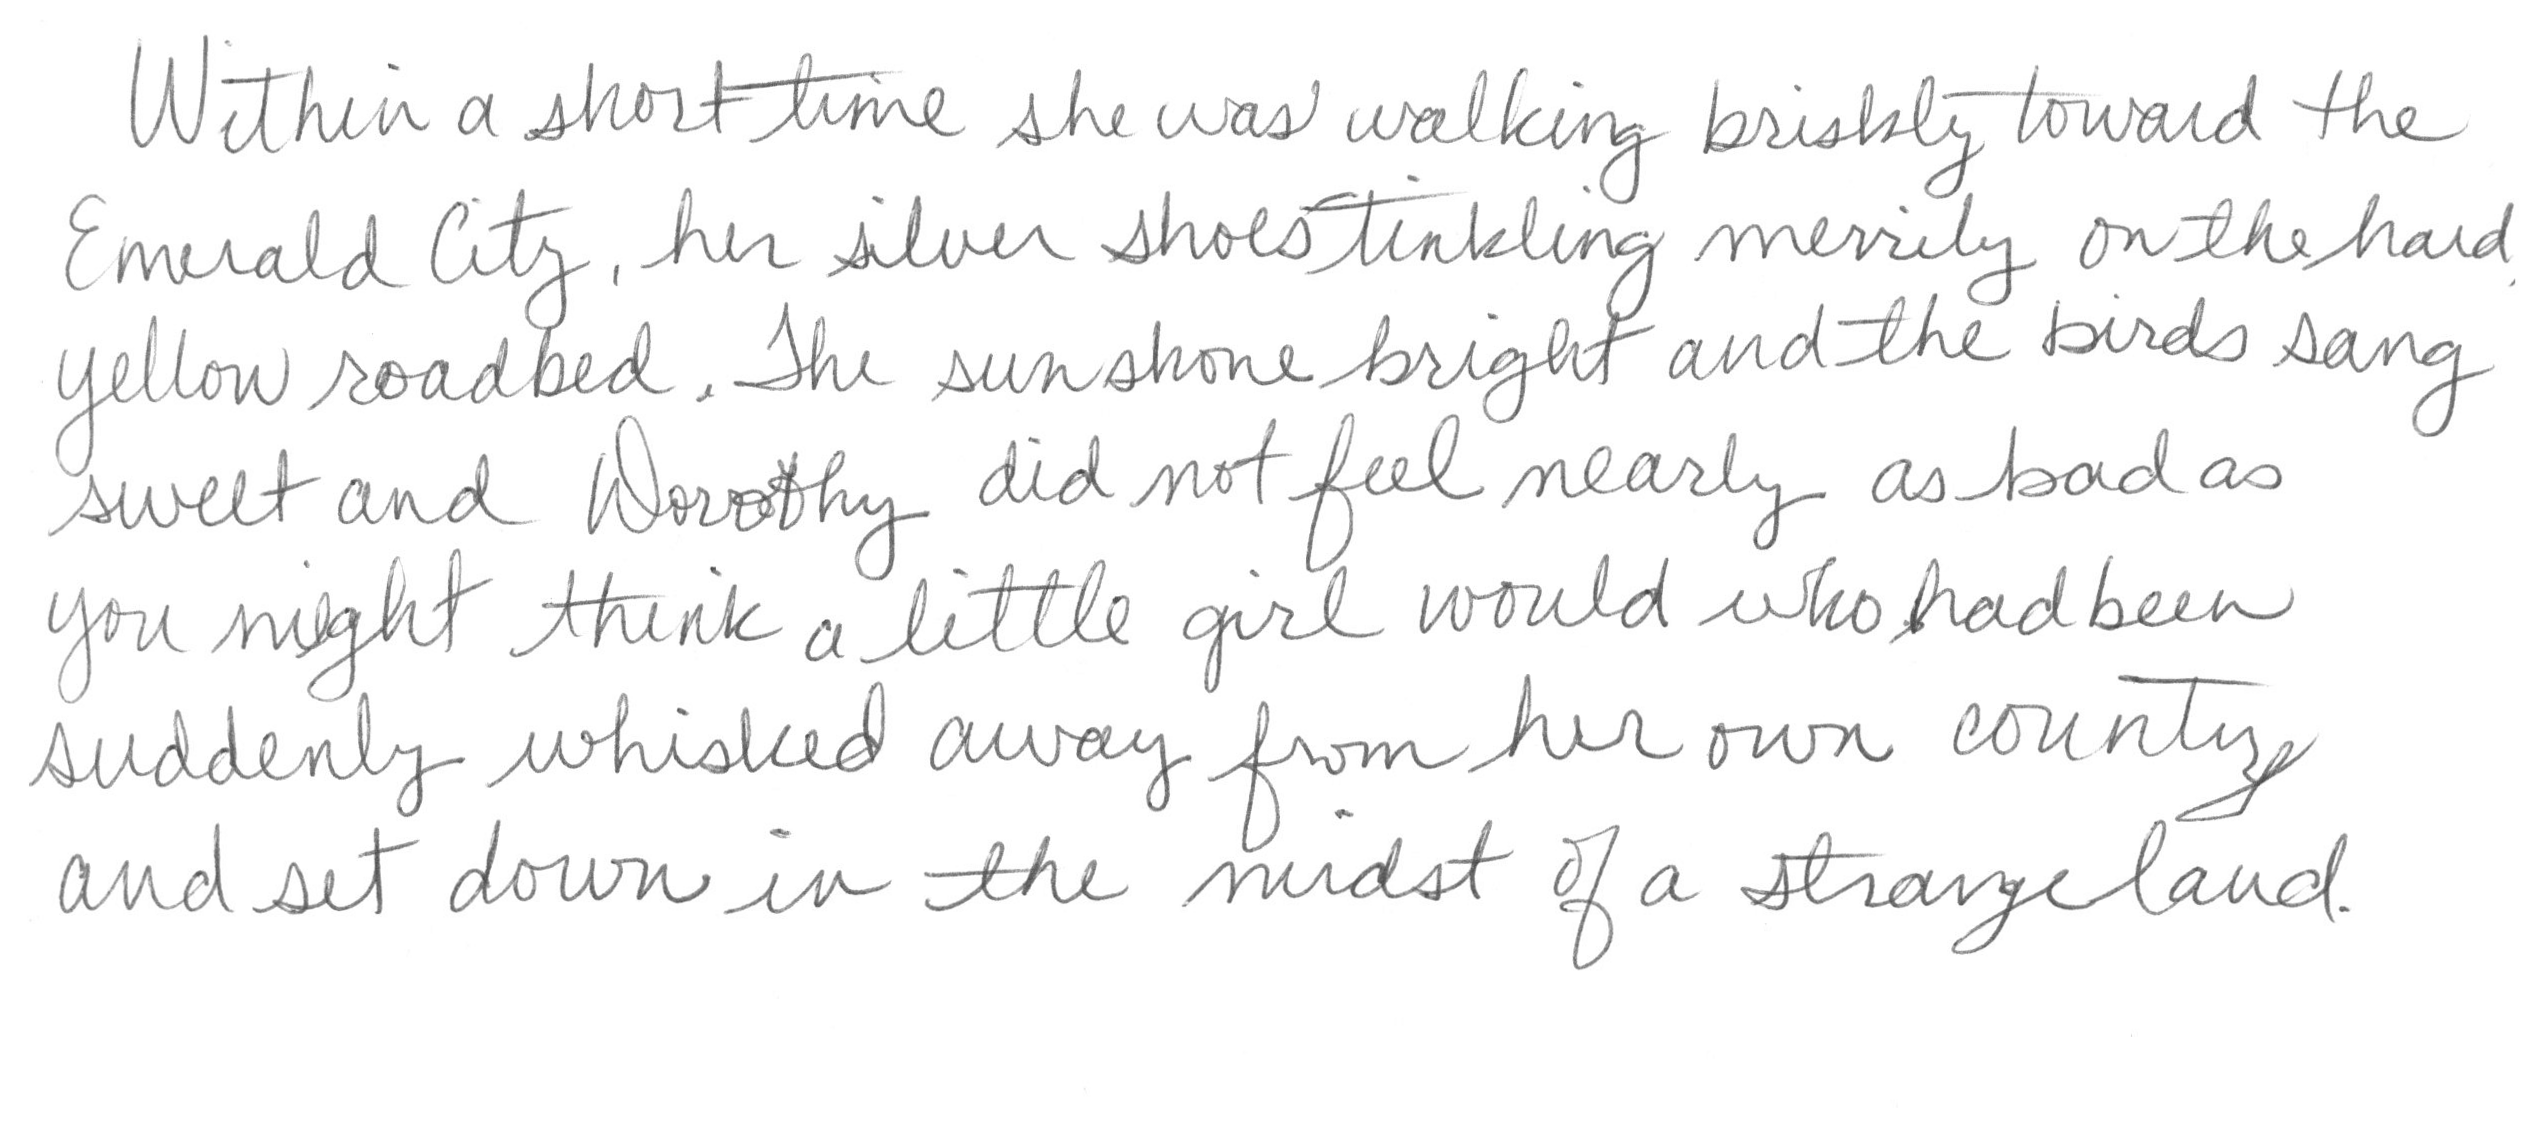 Within a short time she was walking briskly toward the
Emerald City, her silver shoes tinkling merrily on the hard,
yellow roadbed. The sun shone bright and the birds sang
sweet and Dorothy did not feel nearly as bad as
you might think a little girl would who had been
suddenly whisked away from her own country
and set down in the midst of a strange land.